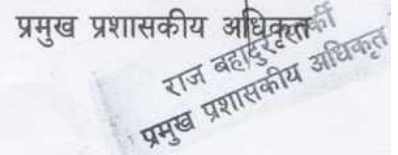 प्रमुख प्रशासकीय अधिकृत
राज बहादुर
प्रमुख प्रशासकीय अधिकृत